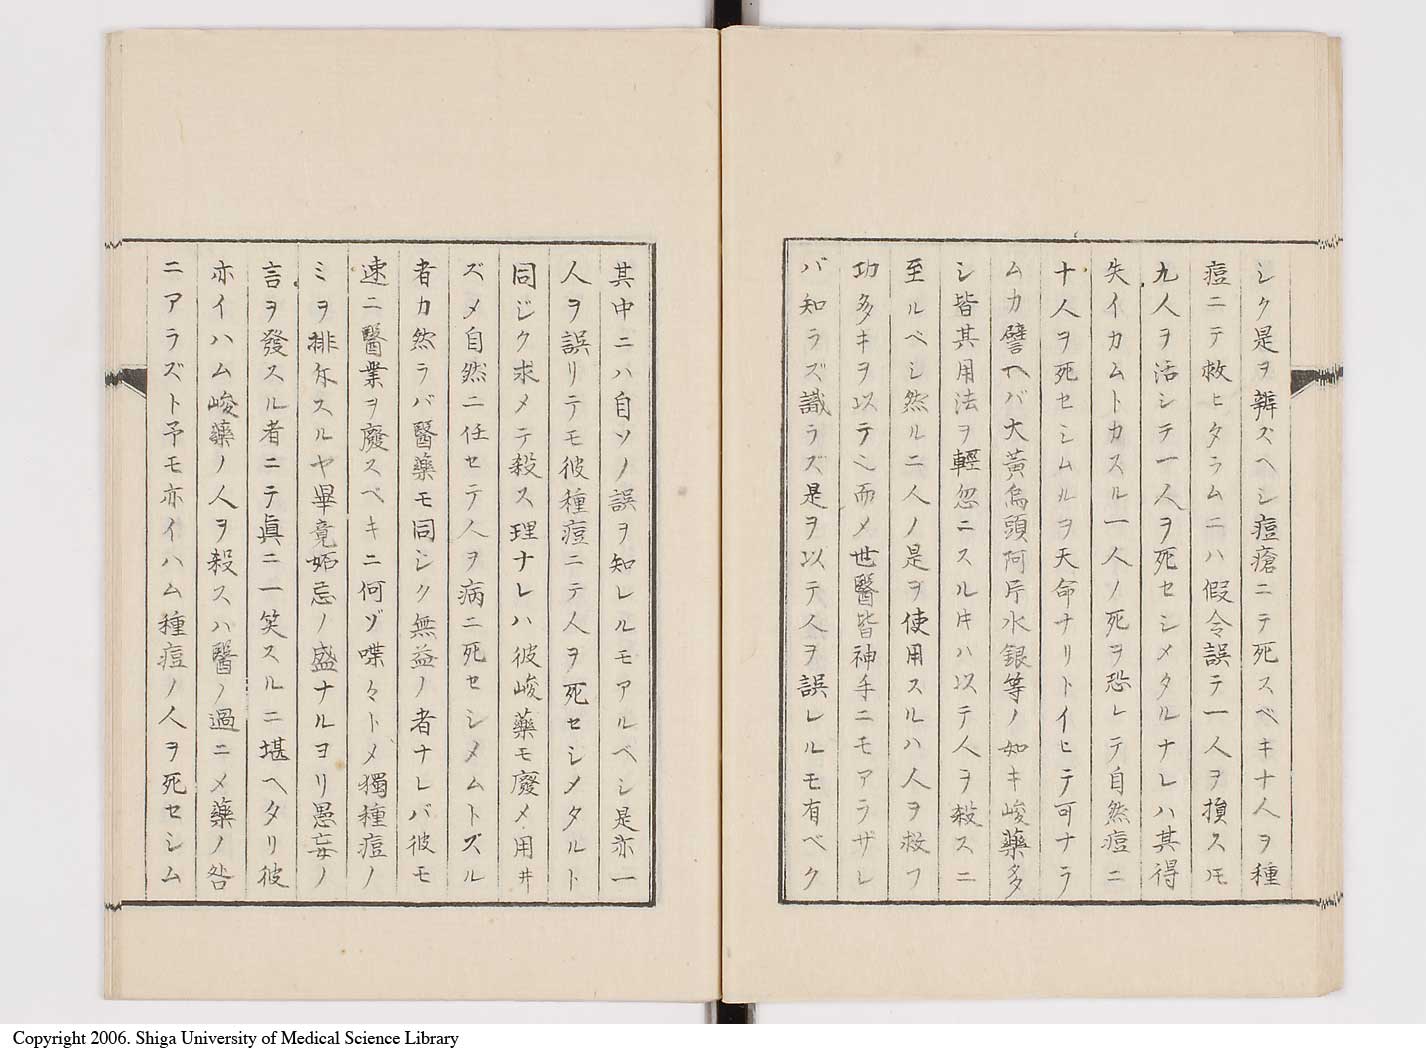 シク是ヲ辨ズヘシ痘瘡ニテ死スベキ十人ヲ種
痘ニテ救ヒタラムニハ假令誤テ一人ヲ損スモ
九人ヲ活シテ一人ヲ死セシメタルナレハ其得
失イカムトカスル一人ノ死ヲ恐レテ自然痘ニ
十人ヲ死セシムルヲ天命ナリトイヒテ可ナラ
ムカ譬ヘバ大黃烏頭阿片水銀等ノ如キ峻藥多
シ皆其用法ヲ輕忽ニスルキハ以テ人ヲ殺スニ
至ルベシ然ルニ人ノ是ヲ使用スルハ人ヲ救フ
功多キヲ以テ之而メ世醫皆神手ニモアラザレ
バ知ラズ識ラズ是ヲ以テ人ヲ誤レルモ有ベク
其中ニハ自ソノ誤ヲ知レルモアルベシ是亦一
人ヲ誤リテモ彼種痘ニテ人ヲ死セシメタルト
同ジク求メテ殺ス理ナレハ彼峻藥モ廢メ用ヰ
ズメ自然ニ任セテ人ヲ病ニ死セシメムトズル
者カ然ラバ醫藥モ同シク無益ノ者ナレバ彼モ
速ニ醫業ヲ廢スベキニ何ゾ喋々トメ獨種痘ノ
ミヲ排斥スルヤ畢竟妬忌ノ盛ナルヨリ愚妄ノ
言ヲ發スル者ニテ眞ニ一笑スルニ堪ヘタリ彼
亦イハム峻藥ノ人ヲ殺スハ醫ノ過ニメ藥ノ咎
ニアラズト予モ亦イハム種痘ノ人ヲ死セシム
Copyright 2006. Shiga University of Medical Science Library